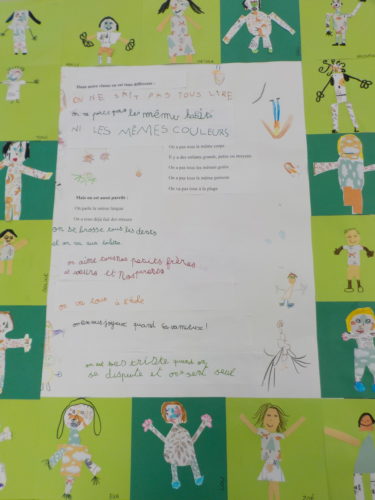 Dans notre classe on est tous différents :
ON NE SAIT PAS TOUS LIRE
on ne porte pas les même habits
NI LES MÊMES COULEURS
On a pas tous le même corps
Il y a des enfants grands, petits ou moyens
On a pas tous les mêmes goûts
On a pas tous le même prénom
On va pas tous à la plage
Mais on est aussi pareils :
On parle la même langue
On a tous déjà fait des
on se brosse tous les dents
et on va aux toilettes
on aime tous nos petits frères
et sœurs et nos parents
on va tous à l'école
on est tous joyeux quand
on est tous triste quand on
se dispute et on se sent seul